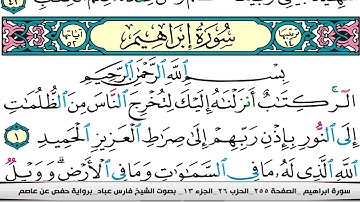 سُورَةُ إِبْرَاهِيمَ
بِسْمِ ٱللَّهِ ٱلرَّحْمَٰنِ ٱلرَّحِيمِ
الٓرۚ كِتَٰبٌ أَنزَلْنَٰهُ إِلَيْكَ لِتُخْرِجَ ٱلنَّاسَ مِنَ ٱلظُّلُمَٰتِ
إِلَى ٱلنُّورِ بِإِذْنِ رَبِّهِمْ إِلَىٰ صِرَٰطِ ٱلْعَزِيزِ ٱلْحَمِيدِ ١
ٱللَّهِ ٱلَّذِى لَهُۥ مَا فِى ٱلسَّمَٰوَٰتِ وَمَا فِى ٱلْأَرْضِۗ وَوَيْلٌ
سورة ابراهيم _الصفحة ٢٥٥ _الحزب ٢٦ _الجزء ١٣ _ بصوت الشيخ فارس عباد_ برواية حفص عن عاصم